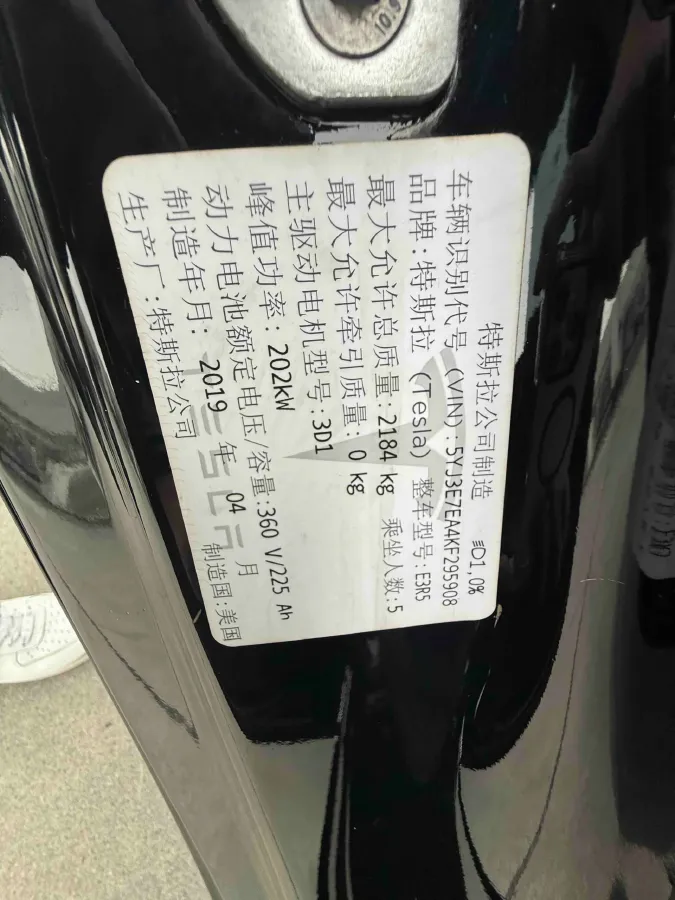 10.9
特斯拉公司制造 ≡D1,0%
车辆识别代号 (VIN):5YJ3E7EA4KF295908
品牌:特斯拉 (Tesla) 整车型号:E3R5
最大允许总质量:2184 kg 乘坐人数:5
最大允许牵引质量: 0 kg
主驱动电机型号:3D1
峰值功率: 202kW
动力电池额定电压/容量:360 V/225 Ah
制造年月: 2019 年 04 月
生产厂:特斯拉公司 制造国:美国
TESLA